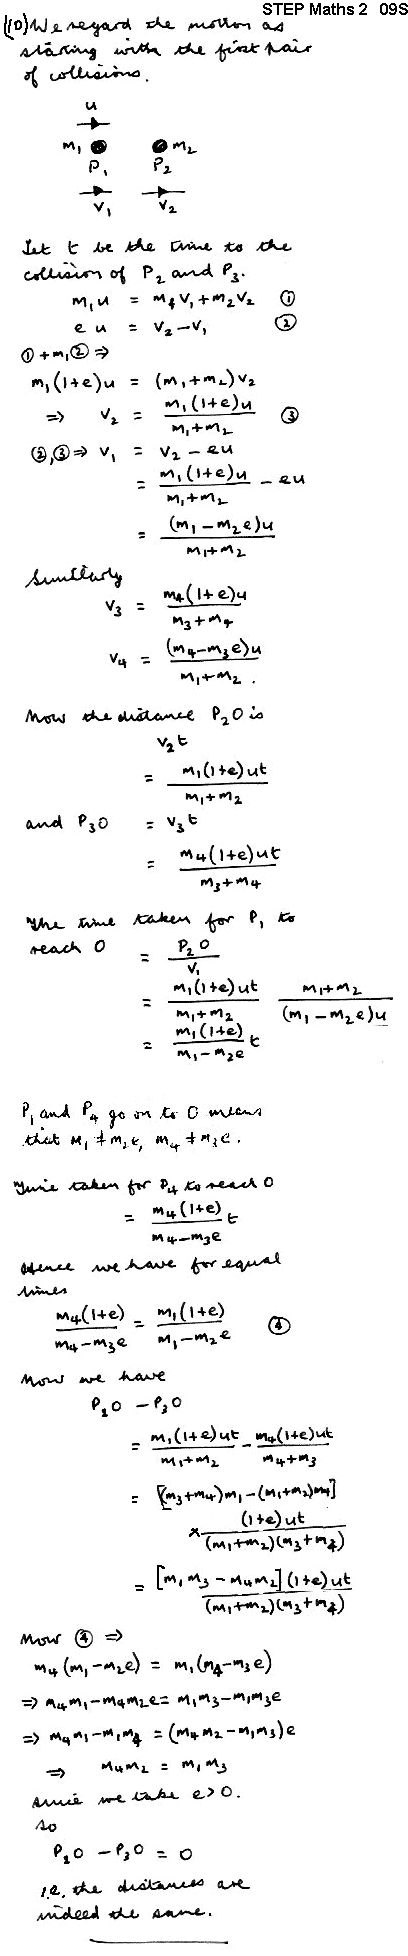 STEP Maths 2 09S
(10) We regard the motion as
starting with the first pair
of collisions.
u
m₁ m₂
P₁ P₂
V₁ V₂
Let t be the time to the
collision of P₂ and P₃.
m₁u = m₁V₁+m₂V₂ ①
e u = V₂-V₁ ②
①+m₁② ⇒
m₁(1+e)u = (m₁+m₂)V₂
⇒ V₂ = m₁(1+e)u / m₁+m₂ ③
②,③ ⇒ V₁ = V₂ - eu
= m₁(1+e)u / m₁+m₂ - eu
= (m₁-m₂e)u / m₁+m₂
Similarly
V₃ = m₄(1+e)u / m₃+m₄
V₄ = (m₄-m₃e)u / m₁+m₂ .
Now the distance P₂O is
V₂t
= m₁(1+e)ut / m₁+m₂
and P₃O = V₃t
= m₄(1+e)ut / m₃+m₄
The time taken for P₁ to
reach O = P₂O / V₁
= m₁(1+e)ut / m₁+m₂ m₁+m₂ / (m₁-m₂e)u
= m₁(1+e) / m₁-m₂e t
P₁ and P₄ go on to O means
that m₁ ≠ m₂e, m₄ ≠ m₃e.
Time taken for P₄ to reach O
= m₄(1+e) / m₄-m₃e t
Hence we have for equal
times
m₄(1+e) / m₄-m₃e = m₁(1+e) / m₁-m₂e ④
Now we have
P₂O - P₃O
= m₁(1+e)ut / m₁+m₂ - m₄(1+e)ut / m₄+m₃
= [(m₃+m₄)m₁-(m₁+m₂)m₄]
× (1+e)ut / (m₁+m₂)(m₃+m₄)
= [m₁m₃-m₄m₂](1+e)ut / (m₁+m₂)(m₃+m₄)
Now ④ ⇒
m₄(m₁-m₂e) = m₁(m₄-m₃e)
⇒ m₄m₁-m₄m₂e = m₁m₃-m₁m₃e
⇒ m₄m₁-m₁m₄ = (m₄m₂-m₁m₃)e
⇒ m₄m₂ = m₁m₃
since we take e>0.
so
P₂O - P₃O = 0
i.e. the distances are
indeed the same.